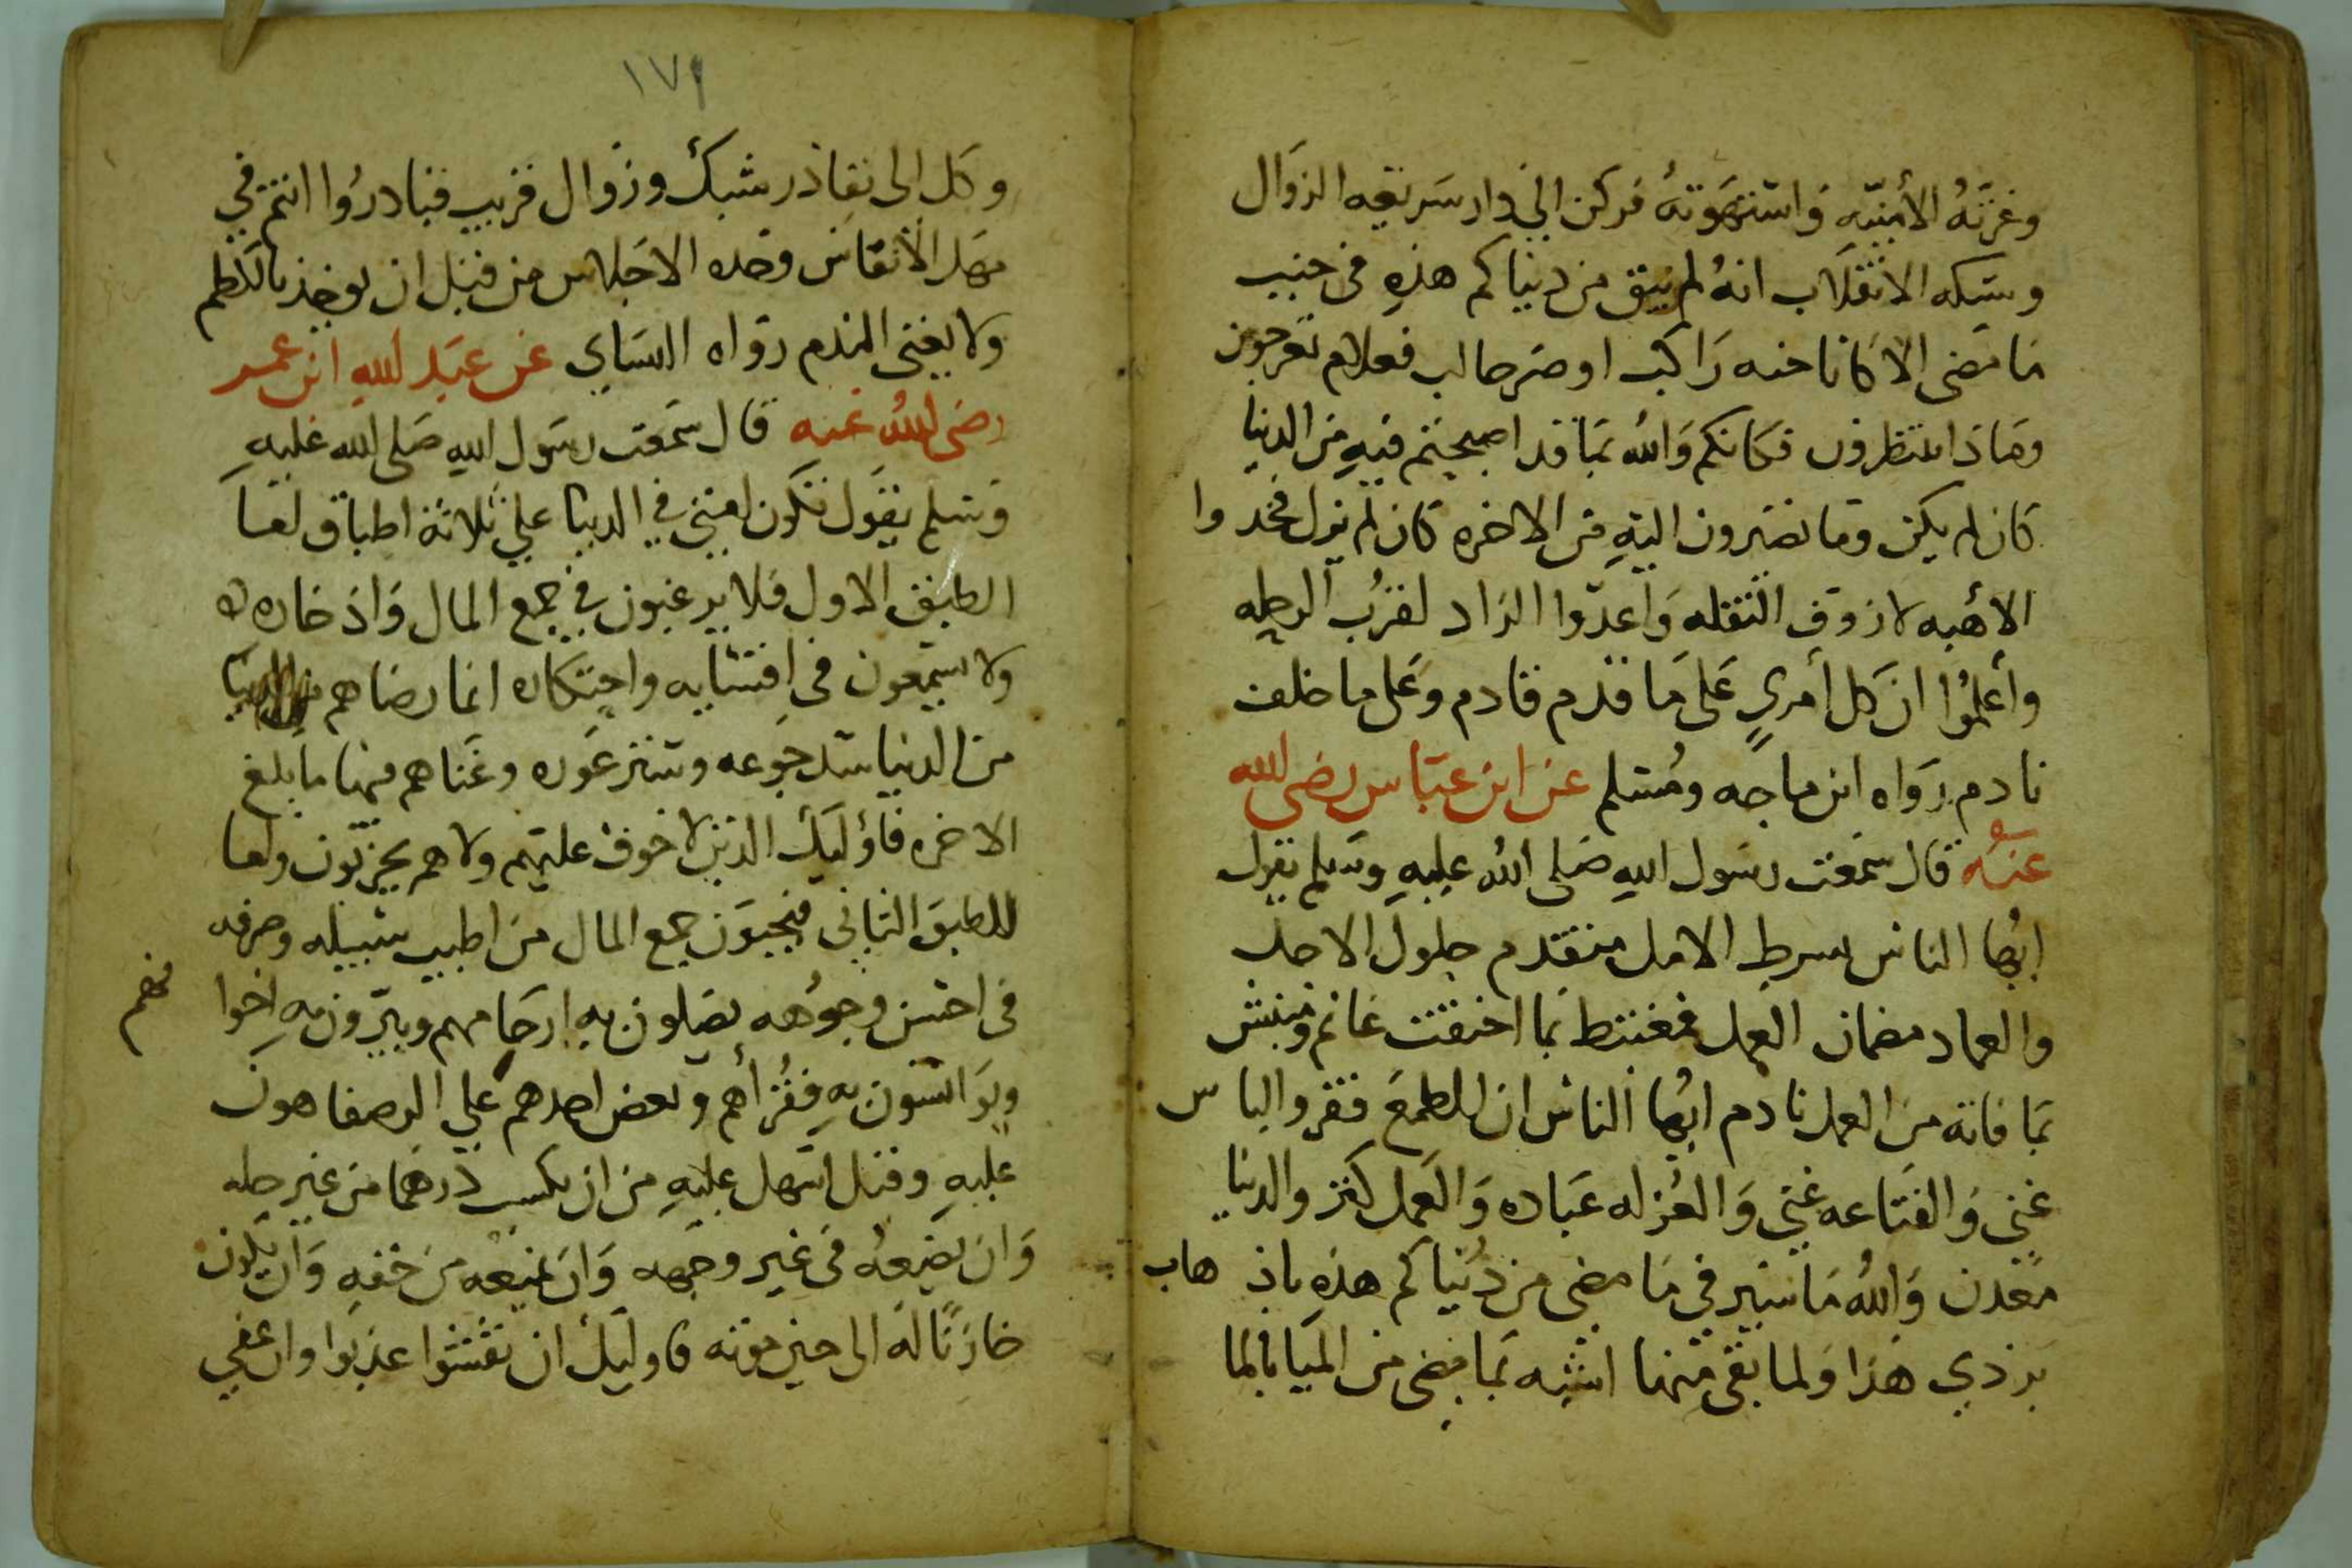 وغرته الأمنيه واستهوته فركن الى دار سريعه الزوال
وشكه الانتقلاب انه لم يبق من دنياكم هذه في جنب
ما مضى الا كاناخه راكب او صرحالب فعلام تعرجون
وماذا تنتظرون فكانكم والله بما قد اصبحتم فيه من الدنيا
كان لم يكن وما تصيرون اليه من الاخره كان لم يزل فخدوا
الأهبه لازوف النقله واعدوا الزاد لقرب الرحله
وأعلموا ان كل أمري على ما قدم قادم وعلى ما خلف
نادم رواه ابن ماجه ومسلم عن ابن عباس رضى الله
عنه قال سمعت رسول الله صلى الله عليه وسلم يقول
ايها الناس بسرط الامل متقدم حلول الاجل
والمعاد مضمان العمل فمغتبط بما احتقت غانم ومبتس
بما فاته من العمل نادم ايها الناس ان الطمع فقر والياس
غنى والقناعه غنى والعزله عباده والعمل كنز والدنيا
معدن والله ما سير في ما مضى من دنياكم هذه باذهاب
بردي هذا ولما بقى منها اشبه بما مضى من الميا بالما
١٧٩
وكل الى نفاذ رشبك وزوال قريب فبادروا انتم في
مهل الأنفاس وحده الاحلاس من قبل ان يوخذ بالكظم
ولا يغنى الندم رواه النساي عن عبد الله ابن عمر
رضى الله عنه قال سمعت رسول الله صلى الله عليه
وسلم يقول تكون امتى في الدنيا على ثلاثة اطباق اما
الطبق الاول فلا يرغبون في جمع المال واذخاره
ولا يسمعون في اقتنايه واحتكاره انما رضاهم
من الدنيا سد جوعه وستر عوره وغناهم فيها ما بلغ
الاخره فاؤليك الذين لا خوف عليهم ولا هم يحزنون واما
للطبق الثاني فيحبون جمع المال من اطيب سبيله وصرفه
في احسن وجوهه يصلون به ارحامهم ويبرون به اخوا
نهم
ويواسون به فقرأهم ولعض احدهم على الرصفا هون
عليه وقبل اسهل عليه من ان يكسب درهما من غير حله
وان يضيعه في غير وجهه وان يمنعه من حقه وان يكون
خازنا له الى حين موته فاوليك ان نقشوا عذبوا وان عفى